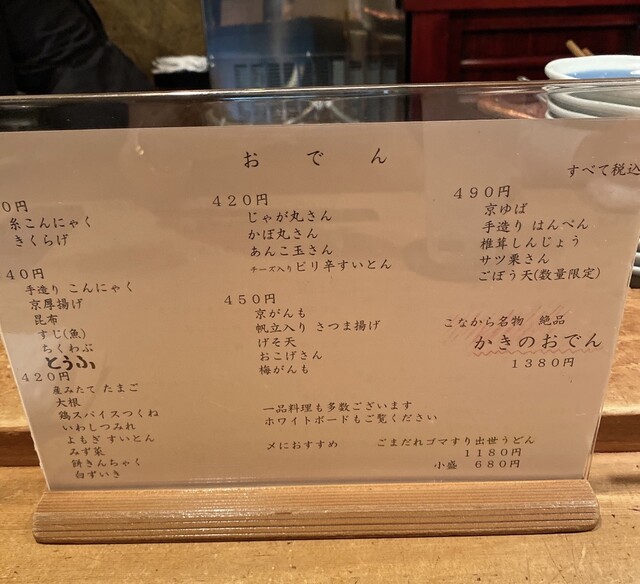 おでん
すべて税込
0円
糸こんにゃく
きくらげ
40円
手造り こんにゃく
京厚揚げ
昆布
すじ(魚)
ちくわぶ
とうふ
420円
産みたて たまご
大根
鶏スパイスつくね
いわしつみれ
よもぎ すいとん
みず菜
餅きんちゃく
白ずいき
420円
じゃが丸さん
かぼ丸さん
あんこ玉さん
チーズ入りピリ辛すいとん
450円
京がんも
帆立入り さつま揚げ
げそ天
おこげさん
梅がんも
490円
京ゆば
手造り はんぺん
椎茸しんじょう
サツ栗さん
ごぼう天(数量限定)
こなから名物 絶品
かきのおでん
1380円
一品料理も多数ございます
ホワイトボードもご覧ください
〆におすすめ ごまだれゴマすり出世うどん
1180円
小盛 680円